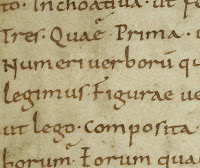 to. Inchoatiua. ut fe
Tres. Quae. Prima. u
Numeri uerborū qu
legimus. Figurae ue
ut lego. Composita.
borum. Eorum qua